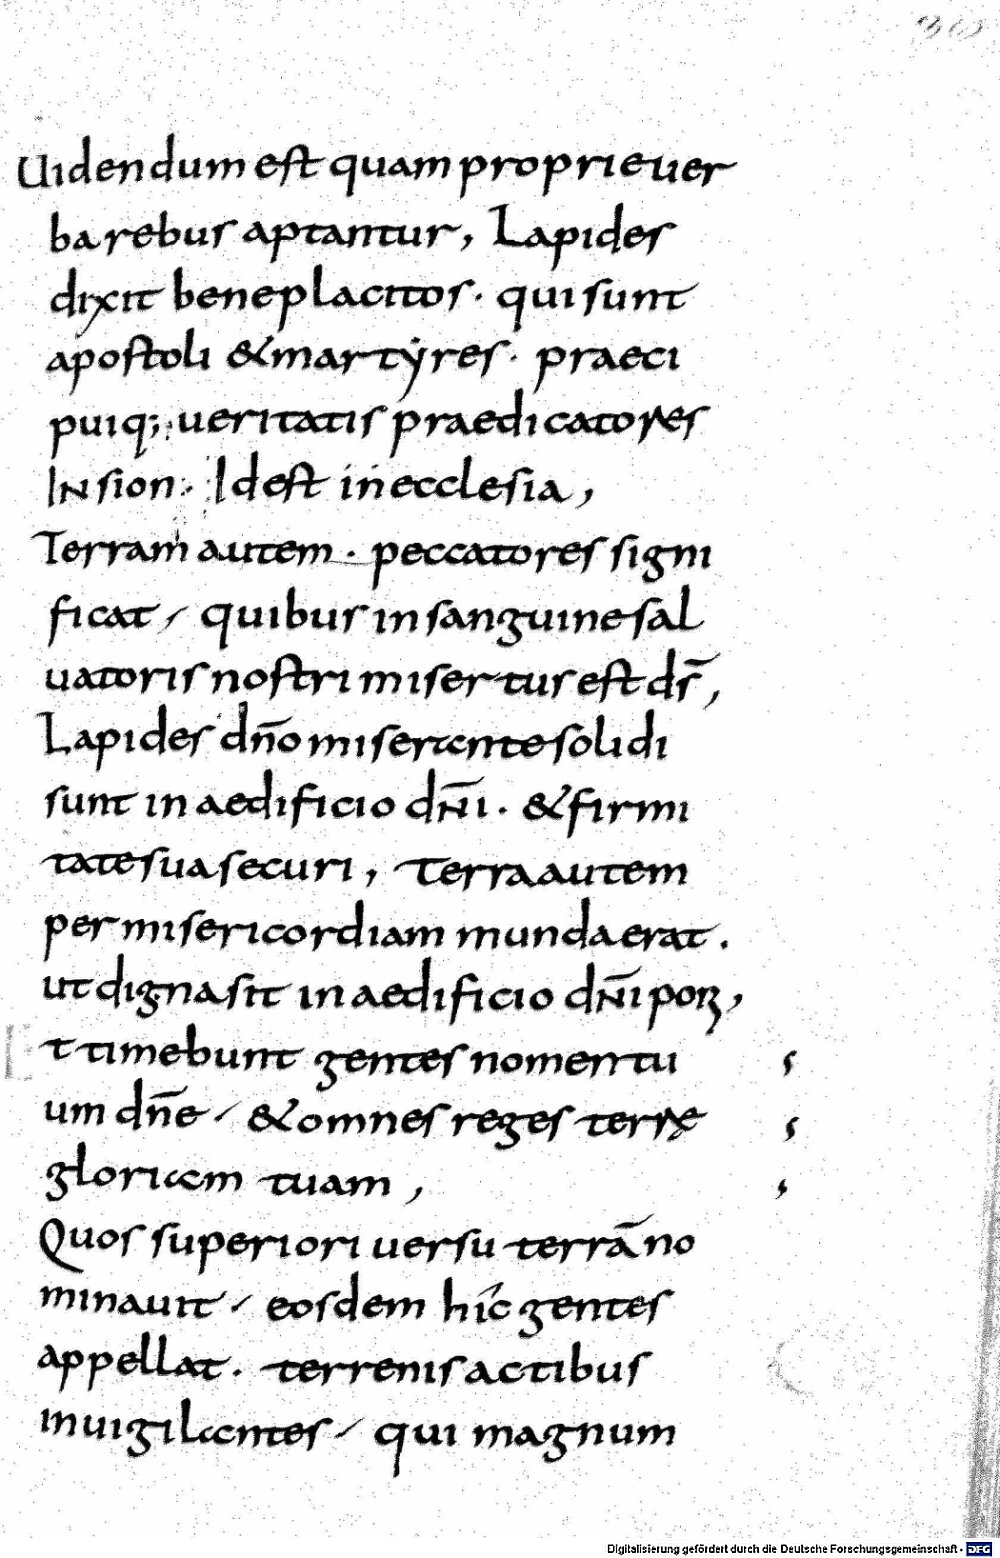 Uidendum est quam proprie uer
ba rebus aptantur, Lapides
dixit beneplacitos. qui sunt
apostoli & martẏres. praeci
puiq; ueritatis praedicatores
IN sion. Idest in ecclesia,
Terram autem. peccatores signi
ficat / quibus in sanguine sal
uatoris nostri misertus est d̄s,
Lapides dn̄o miserante solidi
sunt in aedificio dN̄i. & firmi
tate sua securi, Terra autem
per misericordiam munda erat.
ut digna sit in aedificio dN̄i poꝝ,
t timebunt gentes nomen tu
um dn̄e / & omnes reges terrę
gloriam tuam,
Quos superiori uersu terrā no
minauit / eosdem híc gentes
appellat. terrenis actibus
inuigilantes / qui magnum
Digitalisierung gefördert durch die Deutsche Forschungsgemeinschaft - DFG